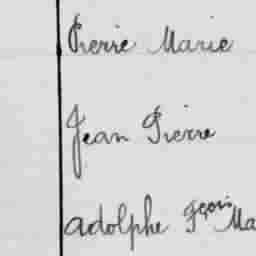 Pierre Marie
Jean Pierre
Adolphe Fçois Ma